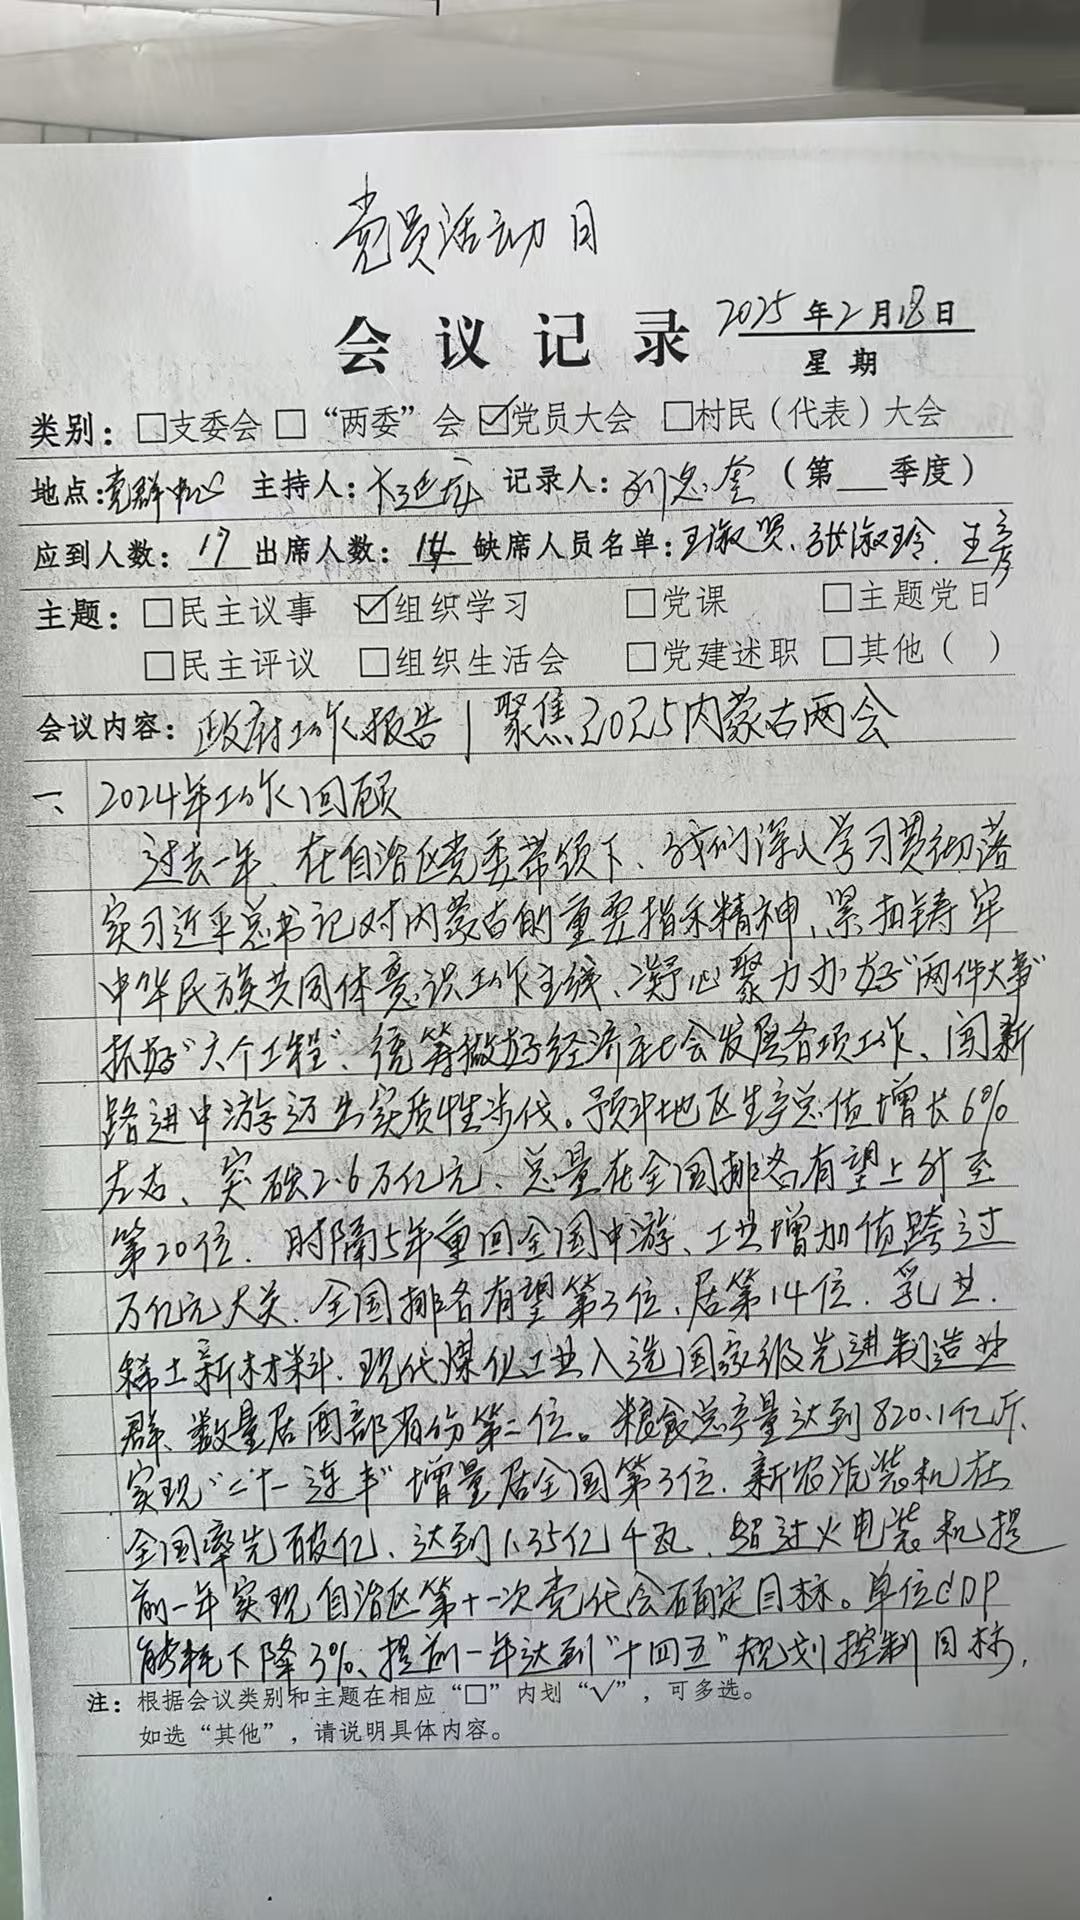 党员活动日
会议记录
2025年2月18日
星期
类别：□支委会 □“两委”会 ☑党员大会 □村民（代表）大会
地点：党群中心 主持人： 记录人：刘忠奎（第 季度）
应到人数：17 出席人数：14 缺席人员名单：王淑贤、张淑玲、王彦
主题：□民主议事 ☑组织学习 □党课 □主题党日
□民主评议 □组织生活会 □党建述职 □其他（ ）
会议内容：政府工作报告｜聚焦2025内蒙古两会
一、2024年工作回顾
过去一年、在自治区党委带领下、我们深入学习贯彻落
实习近平总书记对内蒙古的重要指示精神、紧扣铸牢
中华民族共同体意识工作主线、凝心聚力办好“两件大事”
抓好“六个工程”、统筹做好经济社会发展各项工作、闯新
路进中游迈出实质性步伐。预计地区生产总值增长6%
左右、突破2.6万亿元、总量在全国排名有望上升至
第20位、时隔5年重回全国中游、工业增加值跨过
万亿元大关、全国排名有望第3位、居第14位、乳业、
稀土新材料、现代煤化工业入选国家级先进制造业
群、数量居西部省份第二位。粮食总产量达到820.1亿斤、
实现“二十一连丰”增量居全国第3位、新能源装机在
全国率先破亿、达到1.35亿千瓦、超过火电装机提
前一年实现自治区第十一次党代会确定目标。单位GDP
能耗下降3%、提前一年达到“十四五”规划控制目标，
注：根据会议类别和主题在相应“□”内划“√”，可多选。
如选“其他”，请说明具体内容。